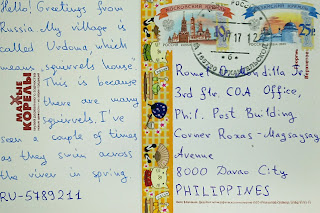 Hello! Greetings from
Russia. My village is
called Vedoma, which
means „squirrels house".
This is because
there are many
squirrels. I've
seen a couple of times
as they swim across
the river in spring.
RU-5789211
КОРЕЛЫ
РОССИЯ
25
17 12
3rd flr. COA Office,
Phil. Post Building
Corner Roxas - Magsaysay
Avenue
8000 Davao City
PHILIPPINES